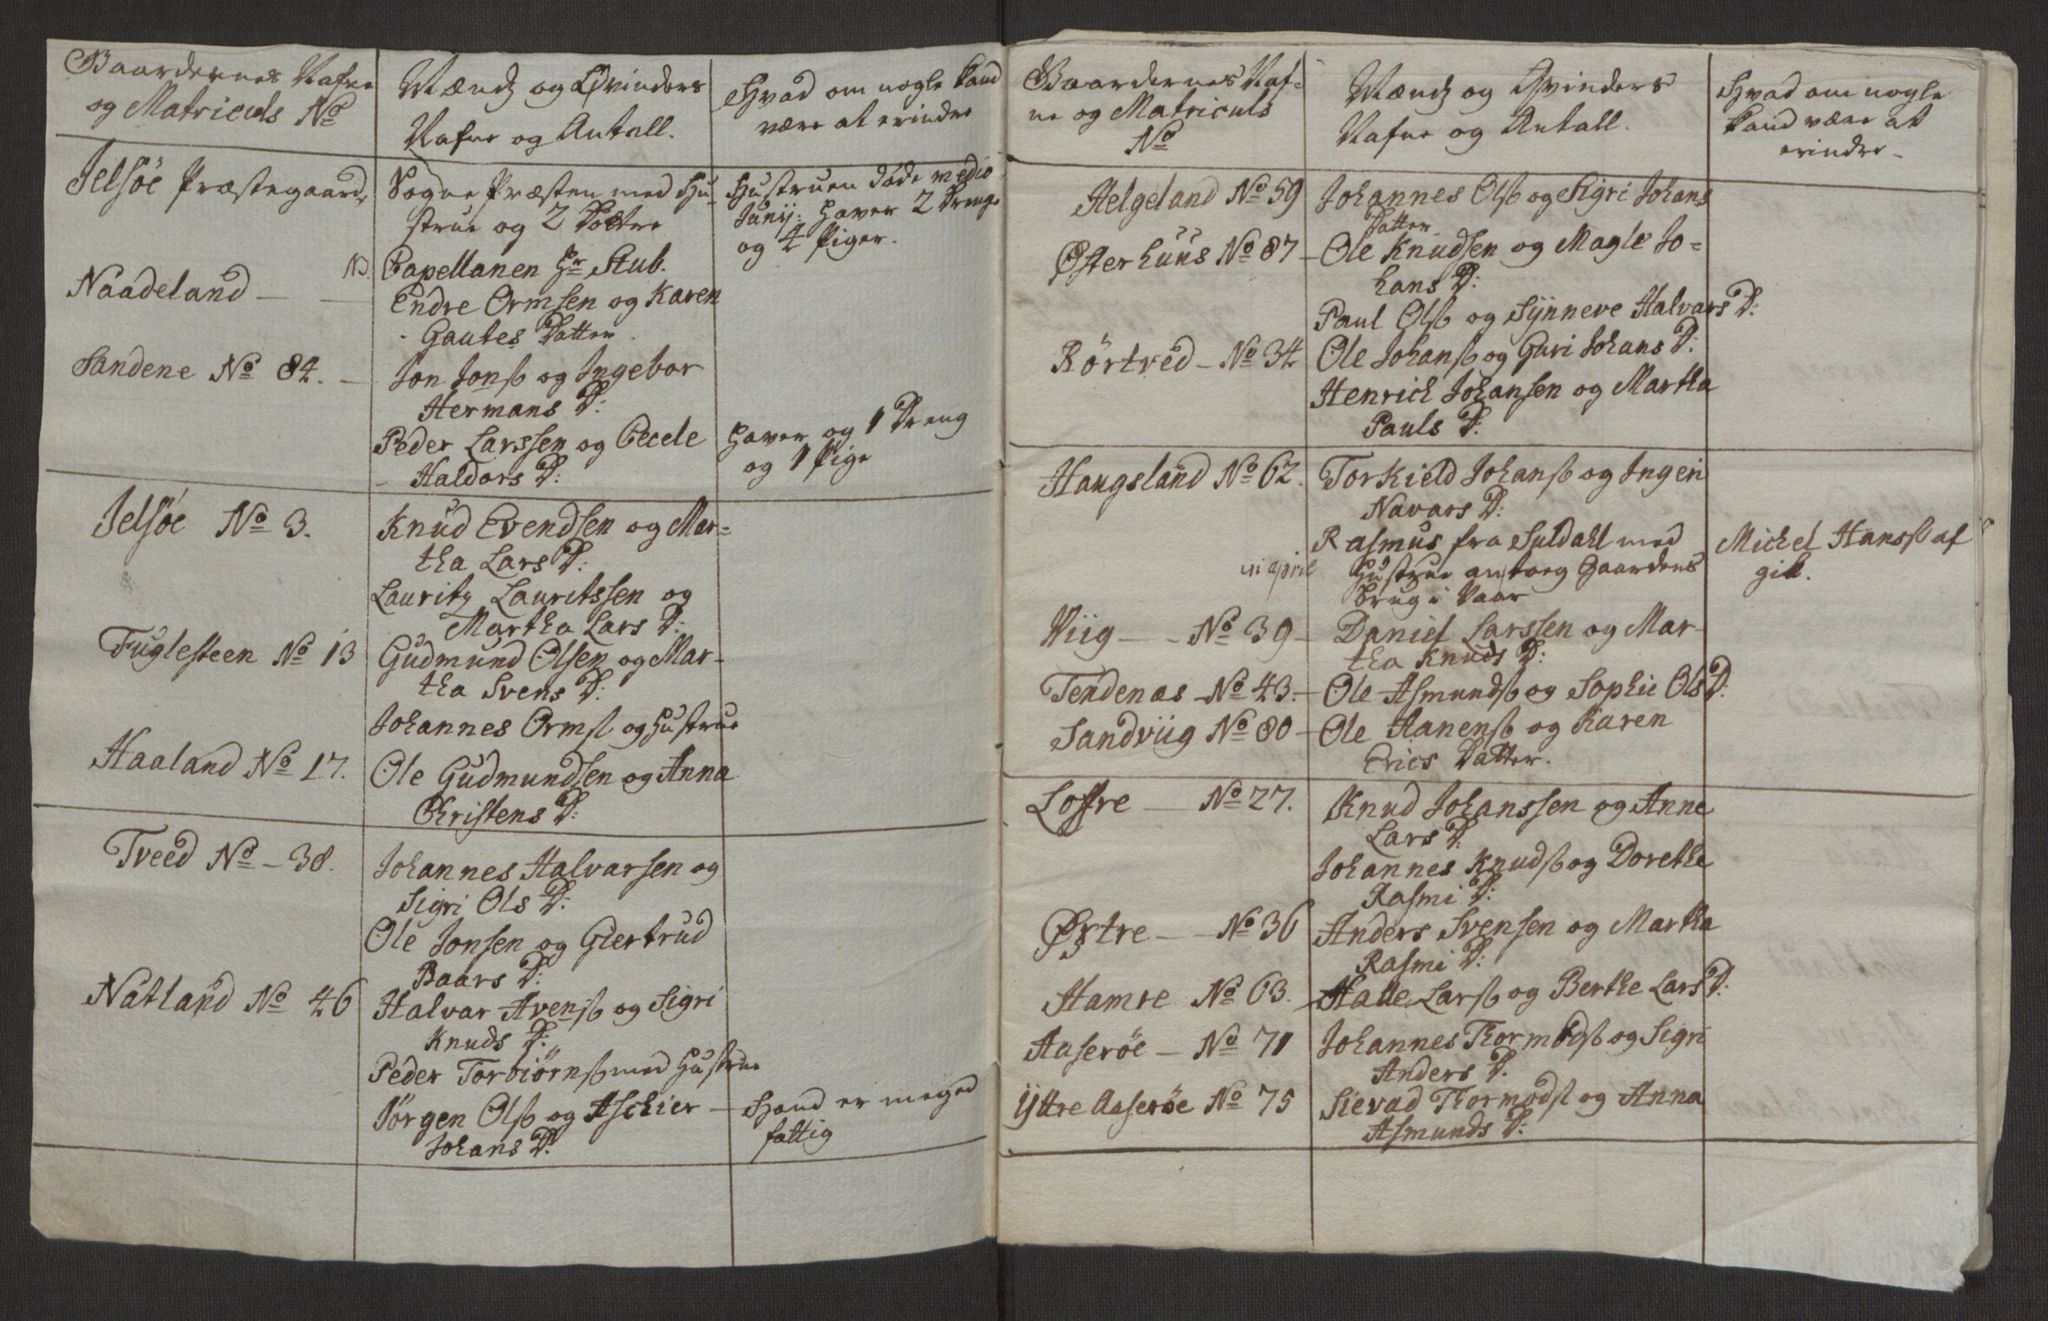 Gaardernes Nafne
og Matriculs No
Mænds og Qvinders
Nafne og Antall.
Hvad om nogle kand
være at erindre
Jelsöe Præstegaard,
Sogne Præsten med Hu-
strue og 2 Döttre
Hustruen döde medio
Junij: haver 2 Drenge
og 4 Piger.
NB. Capellanen Hr Stub.
Naadeland — —
Endre Ormsen og Karen
Gautes Datter
Sandene No 84. —
Jon Jonsß og Ingebor
Hermans D:
Peder Larssen og Cecele
Haldors D:
haver og 1 Dreng
og 1 Pige
Jelsöe No 3.
Knud Evendsen og Mar-
tha Lars D:
Lauritz Lauritssen og
Martha Lars D:
Fuglesteen No 13
Gudmund Olsen og Mar-
tha Svens D:
Johannes Ormsß og Hustrue
Haaland No 17.
Ole Gudmundsen og Anna
Christens D:
Tveed No - 38.
Johannes Halvarsen og
Sigri Ols D:
Ole Jonsen og Giertrud
Baars D:
Natland No 46
Halvar Ivensß og Sigri
Knuds D:
Peder Torbiörnsß med Hustrue
Jörgen Olsß og Aschier —
Johans D:
Hand er meged
fattig
Gaardernes Naf-
ne og Matriculs
No
Mænds og Qvinders
Nafne og Antall.
Hvad om nogle
kand være at
erindre-
Helgeland No 59
Johannes Olsß og Sigri Johans
Datter
Østerhuus No 87 —
Ole Knudsen og Magle Jo-
hans D:
Paul Olsß og Synneve Halvars D:
Börtved - No 34
Ole Johansß og Guri Johans D:
Henrich Johansen og Martha
Pauls D:
Haugsland No 62.
Torkield Johansß og Ingeri
Navars D:
Rasmus fra Suldahl med
Hustrue antoeg Gaardens
brug i Vaar
Michel Hansß af
gik.
Viig — - No 39 —
Daniel Larssen og Mar-
tha Knuds D:
Tendenas - No 43. —
Ole Asmundsß og Sophie Ols D:
Sandviig No 80 —
Ole Hanensß og Karen
Erics Datter.
Lostre — No 27.
Knud Johanssen og Anne
Lars D:
Johannes Knudsß og Dorethe
Rasmi D:
Østre — - No 36
Anders Svensen og Martha
Rasmi D:
Hamre No 63.
Halle Larsß og Berthe Lars D:
Aaseröe — No 71
Johannes Thormodsß og Sigri
Anders D.
Yttre Aaseröe No 75
Sievad Thormodsß og Anna
Asmunds D: